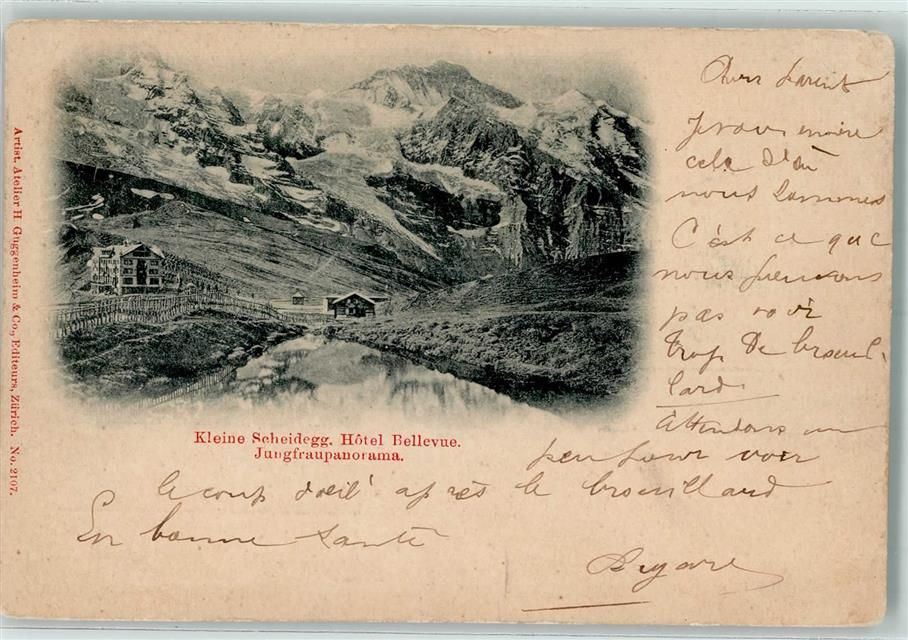 Artist. Atelier H. Guggenheim & Co., Editeurs, Zürich. No. 2107.
Kleine Scheidegg. Hôtel Bellevue.
Jungfraupanorama.
cela d'où
nous sommes
C'est ce que
nous
pas voir
trop de brouil-
lard
Attendons un
peu pour voir
le coup d'oeil après le brouillard
En bonne santé